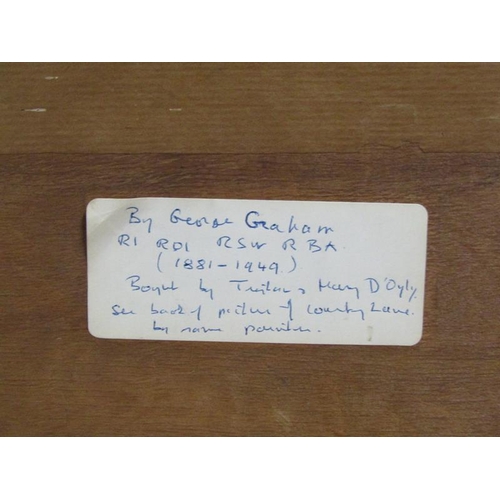 By George Graham
RI ROI RSW RBA
(1881-1949)
Bought by Tristan & Mary D'Oyly,
see back of picture of Country Lane.
by same painter.